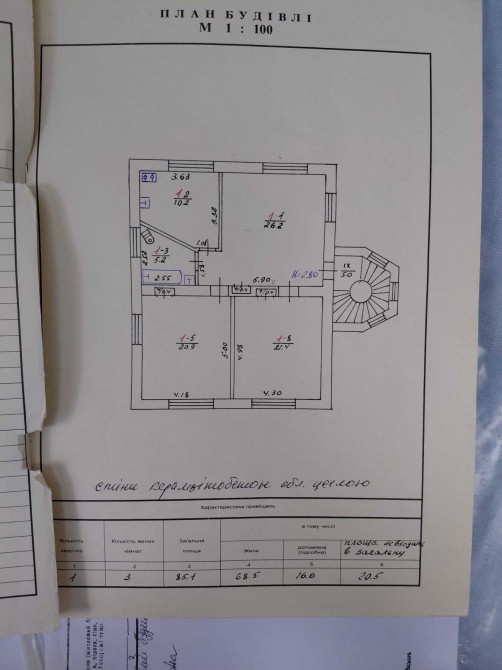 ПЛАН БУДІВЛІ
М 1 : 100
3.63
1-2
10.2
3.32
1-1
26.2
1-3
5.2
2.52
2.55
1.53
5.90
h-2.80
ІХ
5.0
1-5
20.9
5.00
4.98
1-8
21.4
4.18
4.30
стіни керамзітобетон обл. цеглою
Характеристика приміщень
в тому числі
Кількість квартир
Кількість жилих кімнат
Загальна площа
Жила
допоміжна (підсобна)
площа не входить в загальну
1 2 3 4 5 6
1 3 85.1 68.5 16.6 20.5